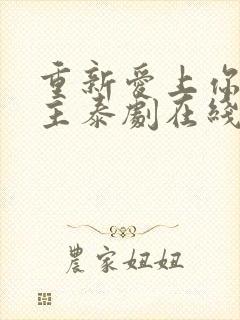 重新爱上你
主泰劇在綫
農家妞妞